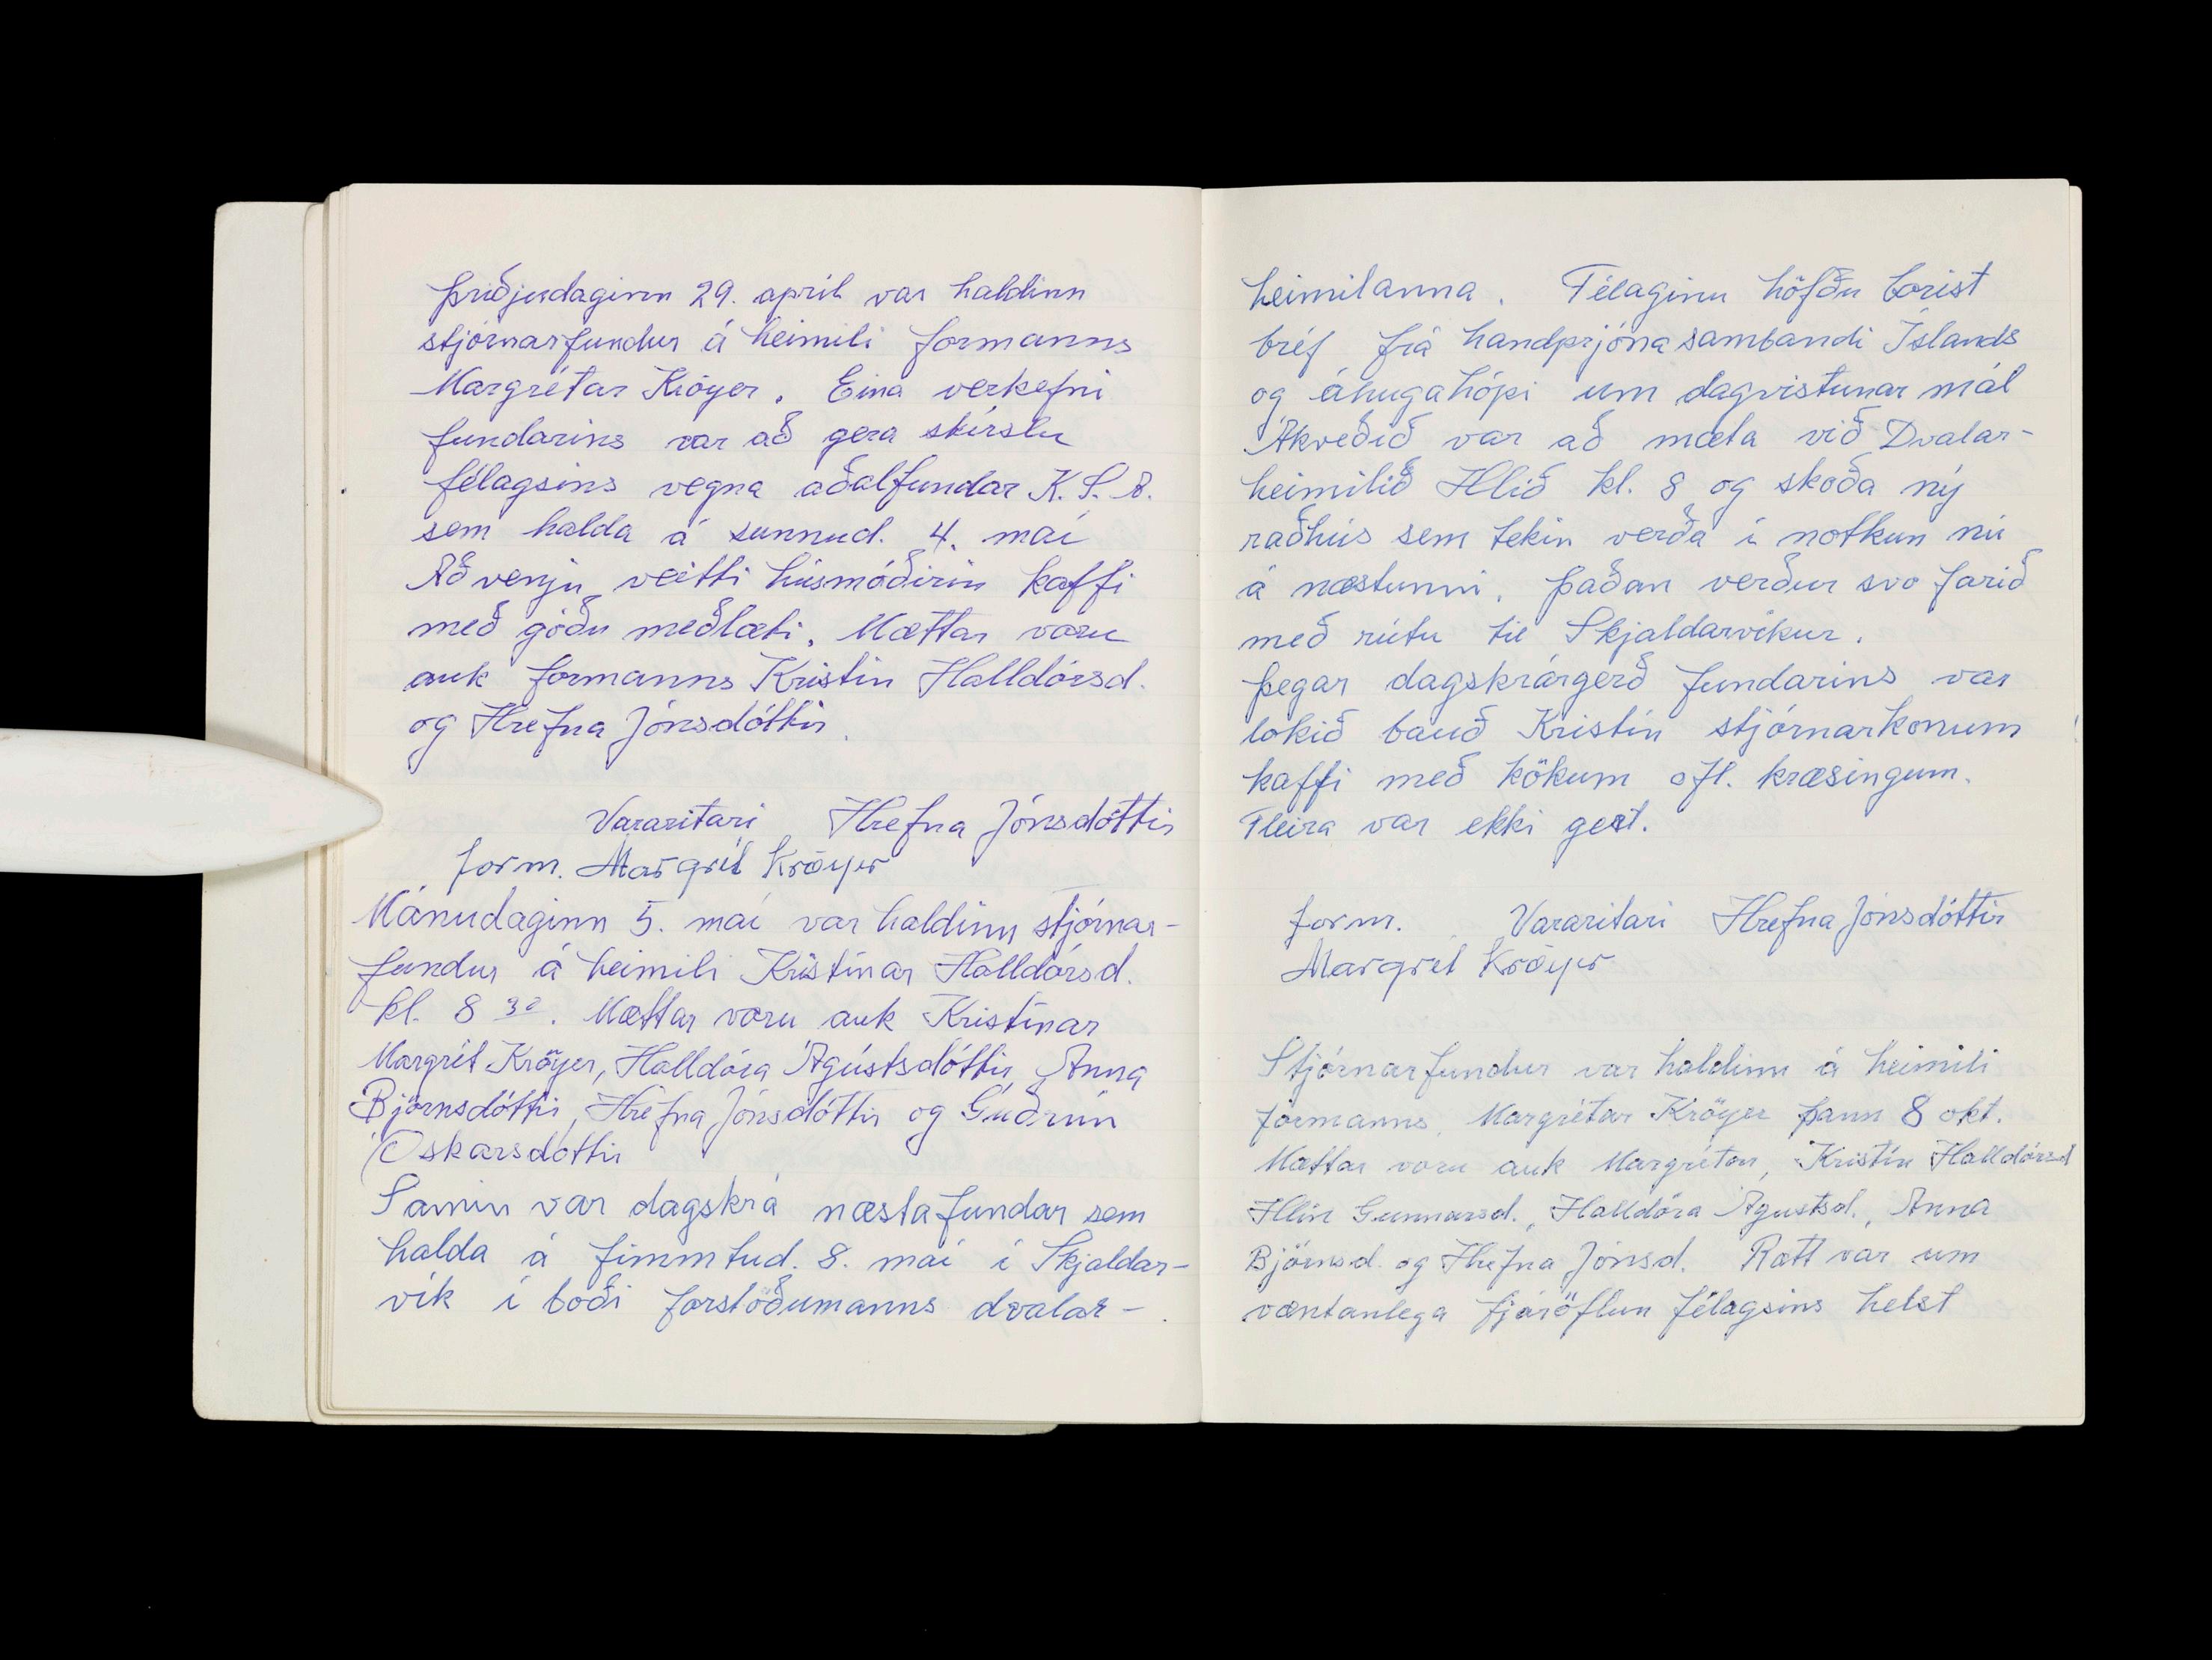 Þriðjudaginn 29. apríl var haldinn
stjórnarfundur á heimili formanns
Margrétar Kröyer. Eina verkefni
fundarins var að gera skírslu
félagsins vegna aðalfundar K.S.A.
sem halda á sunnud. 4. maí
Að venju veitti húsmóðirin kaffi
með góðu meðlæti. Mættar voru
auk formanns Kristín Halldórsd.
og Hrefna Jónsdóttir.
Vararitari Hrefna Jónsdóttir
form. Margrét Kröyer
Mánudaginn 5. maí var haldinn stjórnar-
fundur á heimili Kristínar Halldórsd.
kl. 8 30. Mættar voru auk Kristínar
Margrét Kröyer, Halldóra Ágústsdóttir, Anna
Björnsdóttir, Hrefna Jónsdóttir og Guðrún
Óskarsdóttir
Samin var dagskrá næsta fundar sem
halda á fimmtud. 8. maí í Skjaldar-
vík í boði forstöðumanns dvalar-
heimilanna. Félaginu höfðu borist
bréf frá handprjónasambandi Íslands
og áhugahópi um dagvistunar mál
Ákveðið var að mæta við Dvalar-
heimilið Hlíð kl. 8 og skoða ný
raðhús sem tekin verða í notkun nú
á næstunni. Þaðan verður svo farið
með rútu til Skjaldarvíkur.
Þegar dagskrárgerð fundarins var
lokið bauð Kristín stjórnarkonum
kaffi með kökum ofl. kræsingum.
Fleira var ekki gert.
form. Vararitari Hrefna Jónsdóttir
Margrét Kröyer
Stjórnarfundur var haldinn á heimili
formanns, Margrétar Kröyer þann 8 okt.
Mættar voru auk Margrétar, Kristín Halldórsd
Hlín Gunnarsd., Halldóra Ágústsd., Anna
Björnsd. og Hrefna Jónsd. Rætt var um
væntanlega fjáröflun félagsins helst